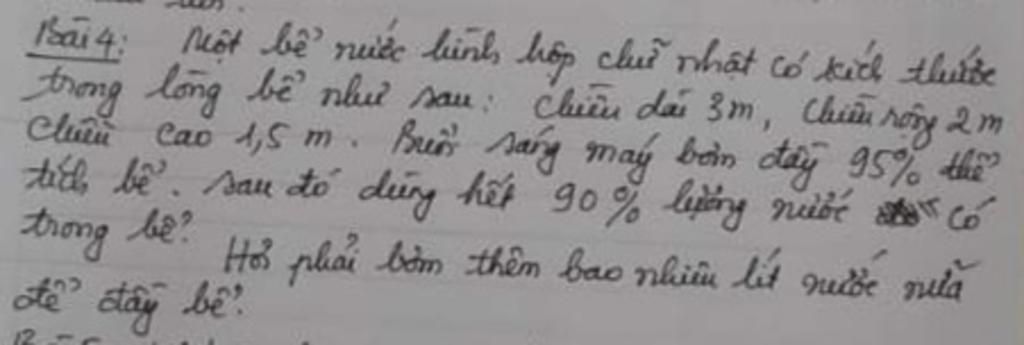 Bài 4: Một bể nước hình hộp chữ nhật có kích thước
trong lòng bể như sau: Chiều dài 3m, Chiều rộng 2m
Chiều cao 1,5 m. Buổi sáng máy bơm đầy 95% thể
tích bể. Sau đó dùng hết 90% lượng nước có
trong bể?
Hỏi phải bơm thêm bao nhiêu lít nước nữa
để đầy bể?